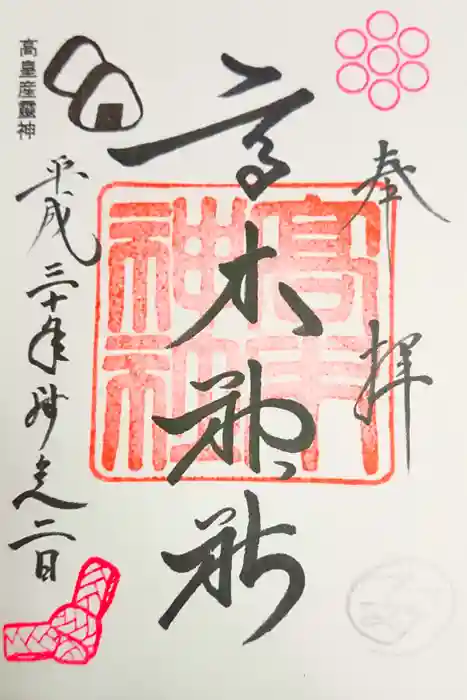 奉拝
高木神社
高木
神社
高皇産靈神
平成三十年師走二日